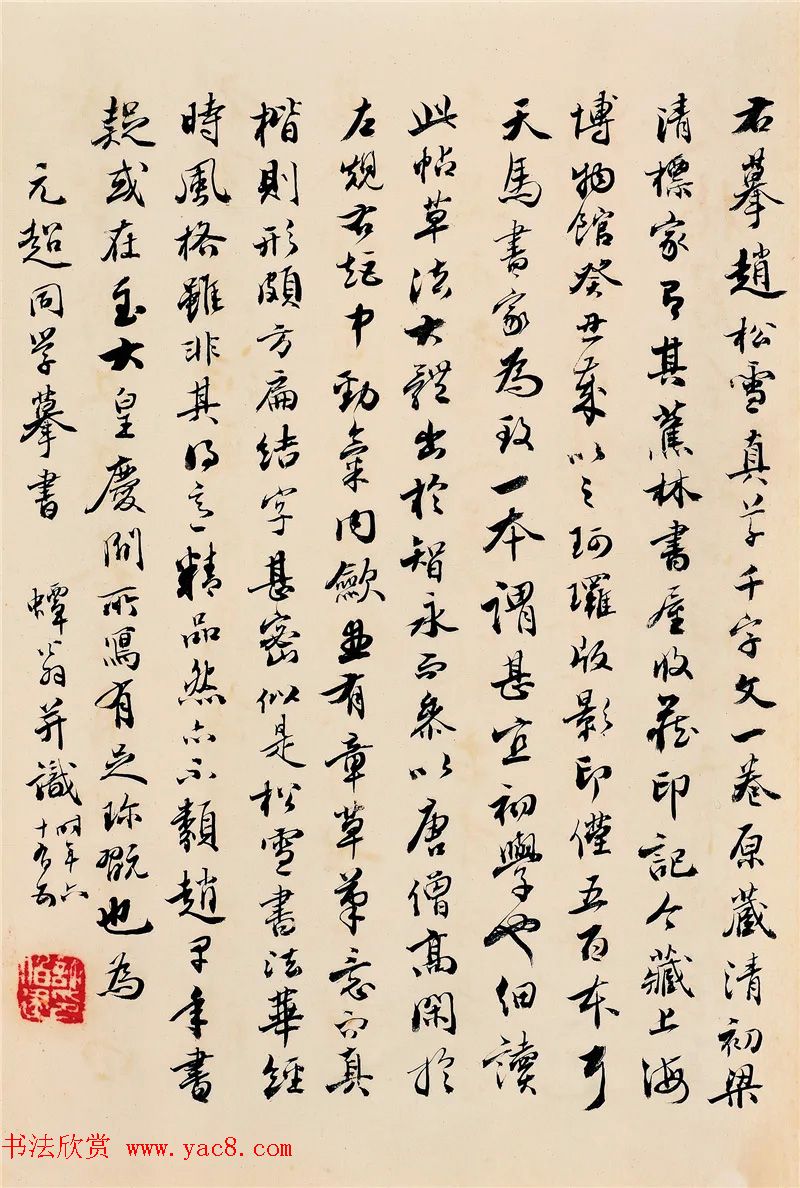 右摹趙松雪真草千字文一卷原藏清初梁
清標家有其蕉林書屋收藏印記今藏上海
博物館癸丑歲以之珂瓏版影印僅五百本
天馬書家為致一本謂甚宜初學也細讀
此帖草法大體出於智永而參以唐僧高閑於
左規右矩中勁氣內歛並有章草筆意而真
楷則形頗方扁結字甚密似是松雪書法華經
時風格雖非其得意精品然亦不類趙早年書
疑或在至大皇慶間所寫有足珍翫也為
元超同學摹書
蟫翁并識時年六
十有五
书法欣赏 www.yac8.com